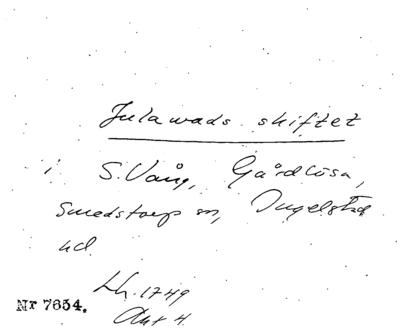 Julawads skiftet
i S. Vång, Gårdlösa,
Smedstorp sn, Ingelstad
hd.
Lh. 1749
Akt 4.
Nr 7654.